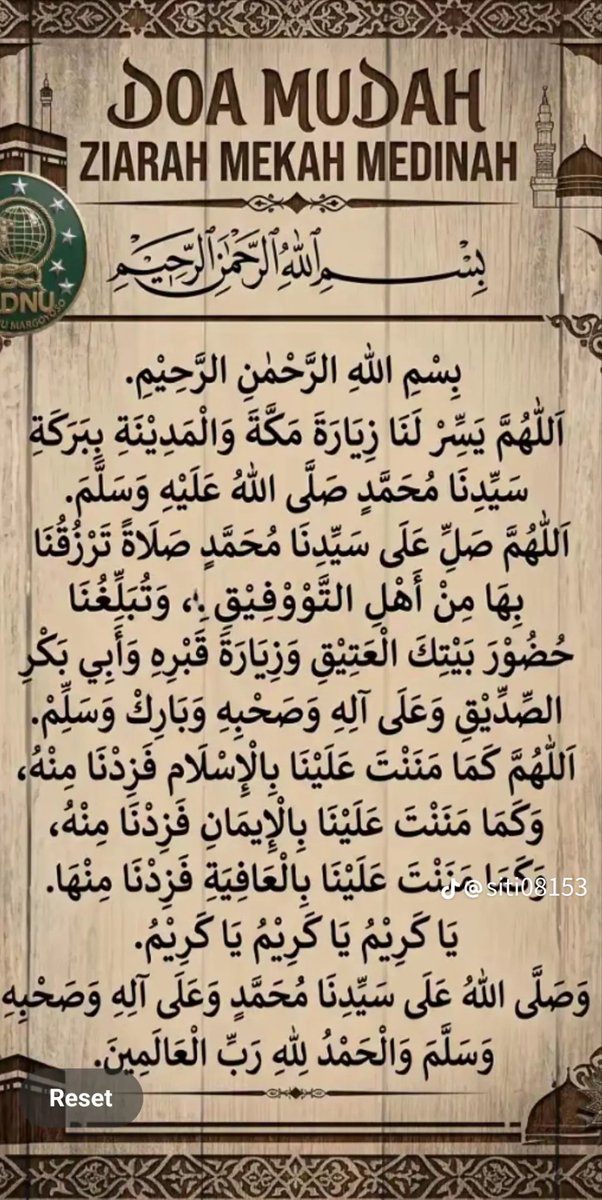 DOA MUDAH
ZIARAH MEKAH MEDINAH
بِسْمِ اللهِ الرَّحْمٰنِ الرَّحِيْمِ
DNU
MARGOYOSO
بِسْمِ اللهِ الرَّحْمٰنِ الرَّحِيْمِ.
اَللّٰهُمَّ يَسِّرْ لَنَا زِيَارَةَ مَكَّةَ وَالْمَدِيْنَةِ بِبَرَكَةِ
سَيِّدِنَا مُحَمَّدٍ صَلَّى اللهُ عَلَيْهِ وَسَلَّمَ.
اَللّٰهُمَّ صَلِّ عَلَى سَيِّدِنَا مُحَمَّدٍ صَلَاةً تَرْزُقُنَا
بِهَا مِنْ أَهْلِ التَّوْوْفِيْقِ، وَتُبَلِّغُنَا
حُضُوْرَ بَيْتِكَ الْعَتِيْقِ وَزِيَارَةَ قَبْرِهِ وَأَبِي بَكْرِ
الصِّدِّيْقِ وَعَلَى آلِهِ وَصَحْبِهِ وَبَارِكْ وَسَلِّمْ.
اَللّٰهُمَّ كَمَا مَنَنْتَ عَلَيْنَا بِالْإِسْلَامِ فَزِدْنَا مِنْهُ،
وَكَمَا مَنَنْتَ عَلَيْنَا بِالْإِيمَانِ فَزِدْنَا مِنْهُ،
وَكَمَا مَنَنْتَ عَلَيْنَا بِالْعَافِيَةِ فَزِدْنَا مِنْهَا.
@siti08153
يَا كَرِيْمُ يَا كَرِيْمُ يَا كَرِيْمُ.
وَصَلَّى اللهُ عَلَى سَيِّدِنَا مُحَمَّدٍ وَعَلَى آلِهِ وَصَحْبِهِ
وَسَلَّمَ وَالْحَمْدُ لِلهِ رَبِّ الْعَالَمِينَ.
Reset